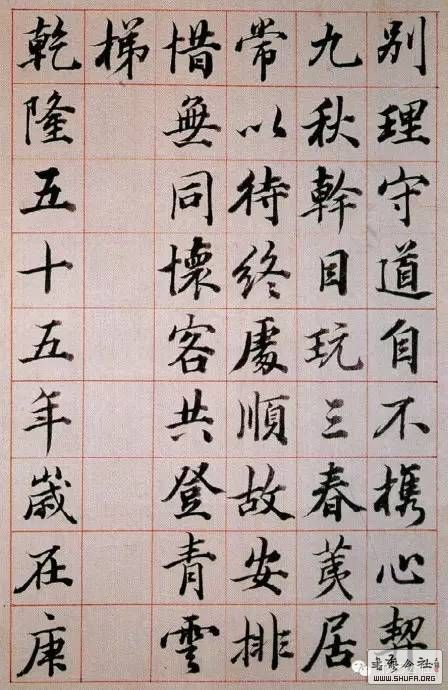 別理守道自不携心契
九秋幹目玩三春荑居
常以待終處順故安排
惜無同懷客共登青雲
梯
乾隆五十五年歲在庚
書藝公社
WWW.SHUFA.ORG